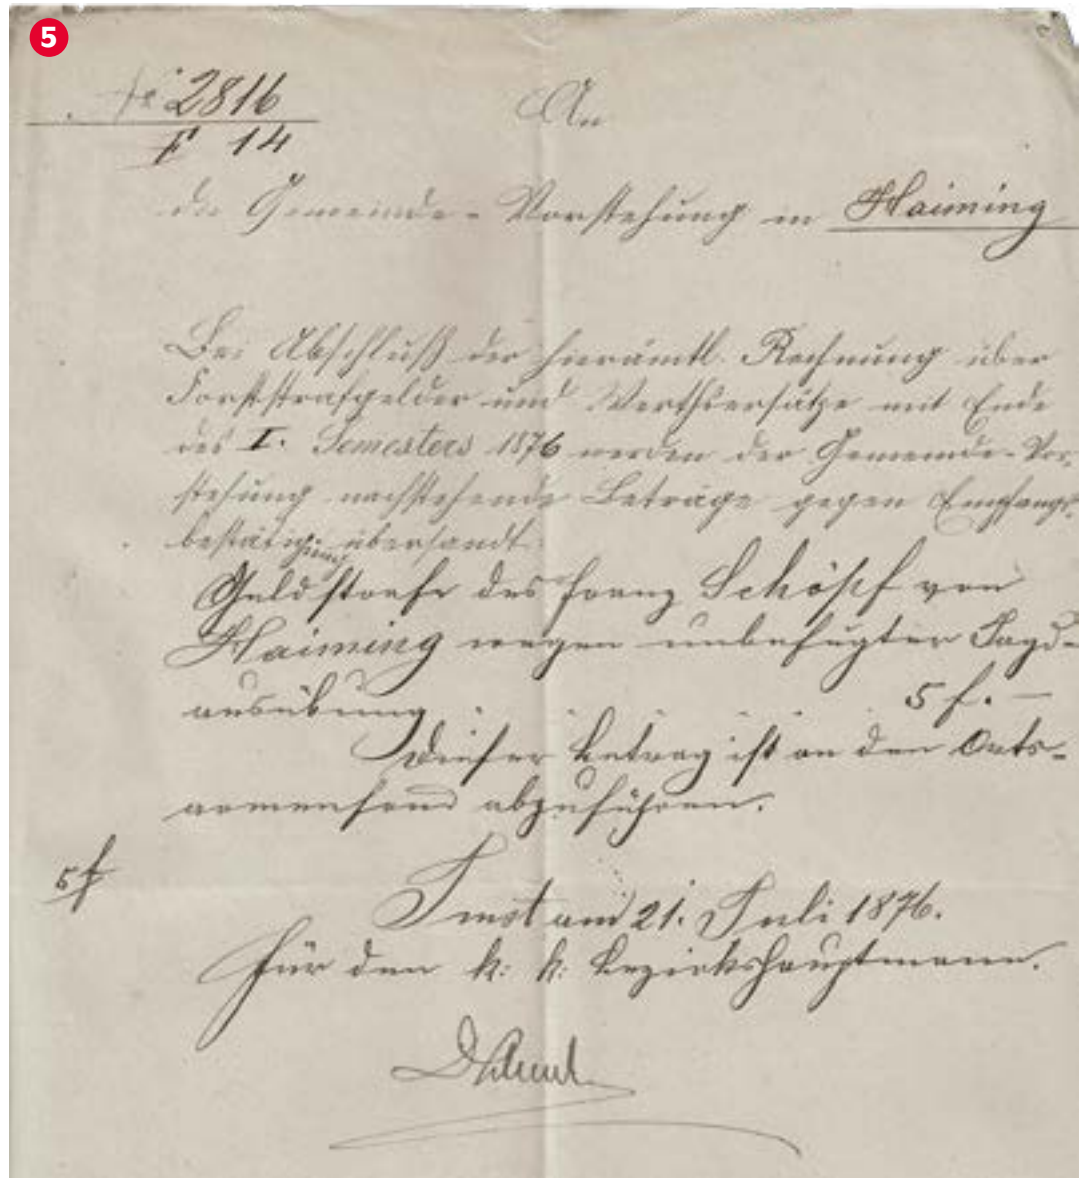 5
№ 2816
F 14
An
die Gemeinde-Vorstehung in Haiming
Bei Abschluß der hierämtl. Rechnung über
Forststrafgelder und Werthsersätze mit Ende
des I. Semesters 1876 werden der Gemeinde-Vor-
stehung nachstehende Beträge gegen Empfangs-
bestätigung übersandt.
Geldstrafe des Franz Schöpf von
Haiming wegen unbefugter Jagd-
ausübung 5 f. –
Dieser Betrag ist an den Orts-
armenfond abzuführen.
5 f
Imst am 21. Juli 1876.
Für den k: k: Bezirkshauptmann.